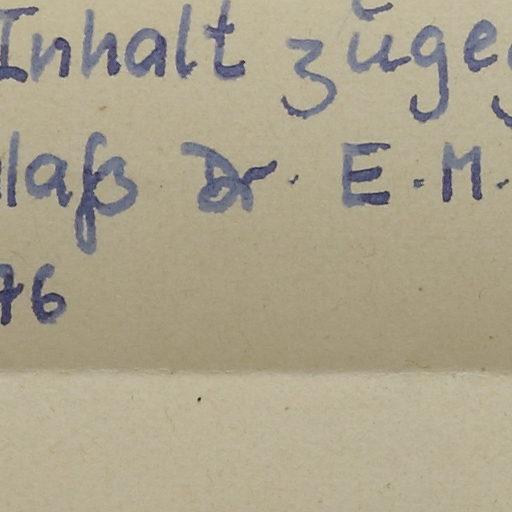 Inhalt zuge
laß Dr. E. M.
76